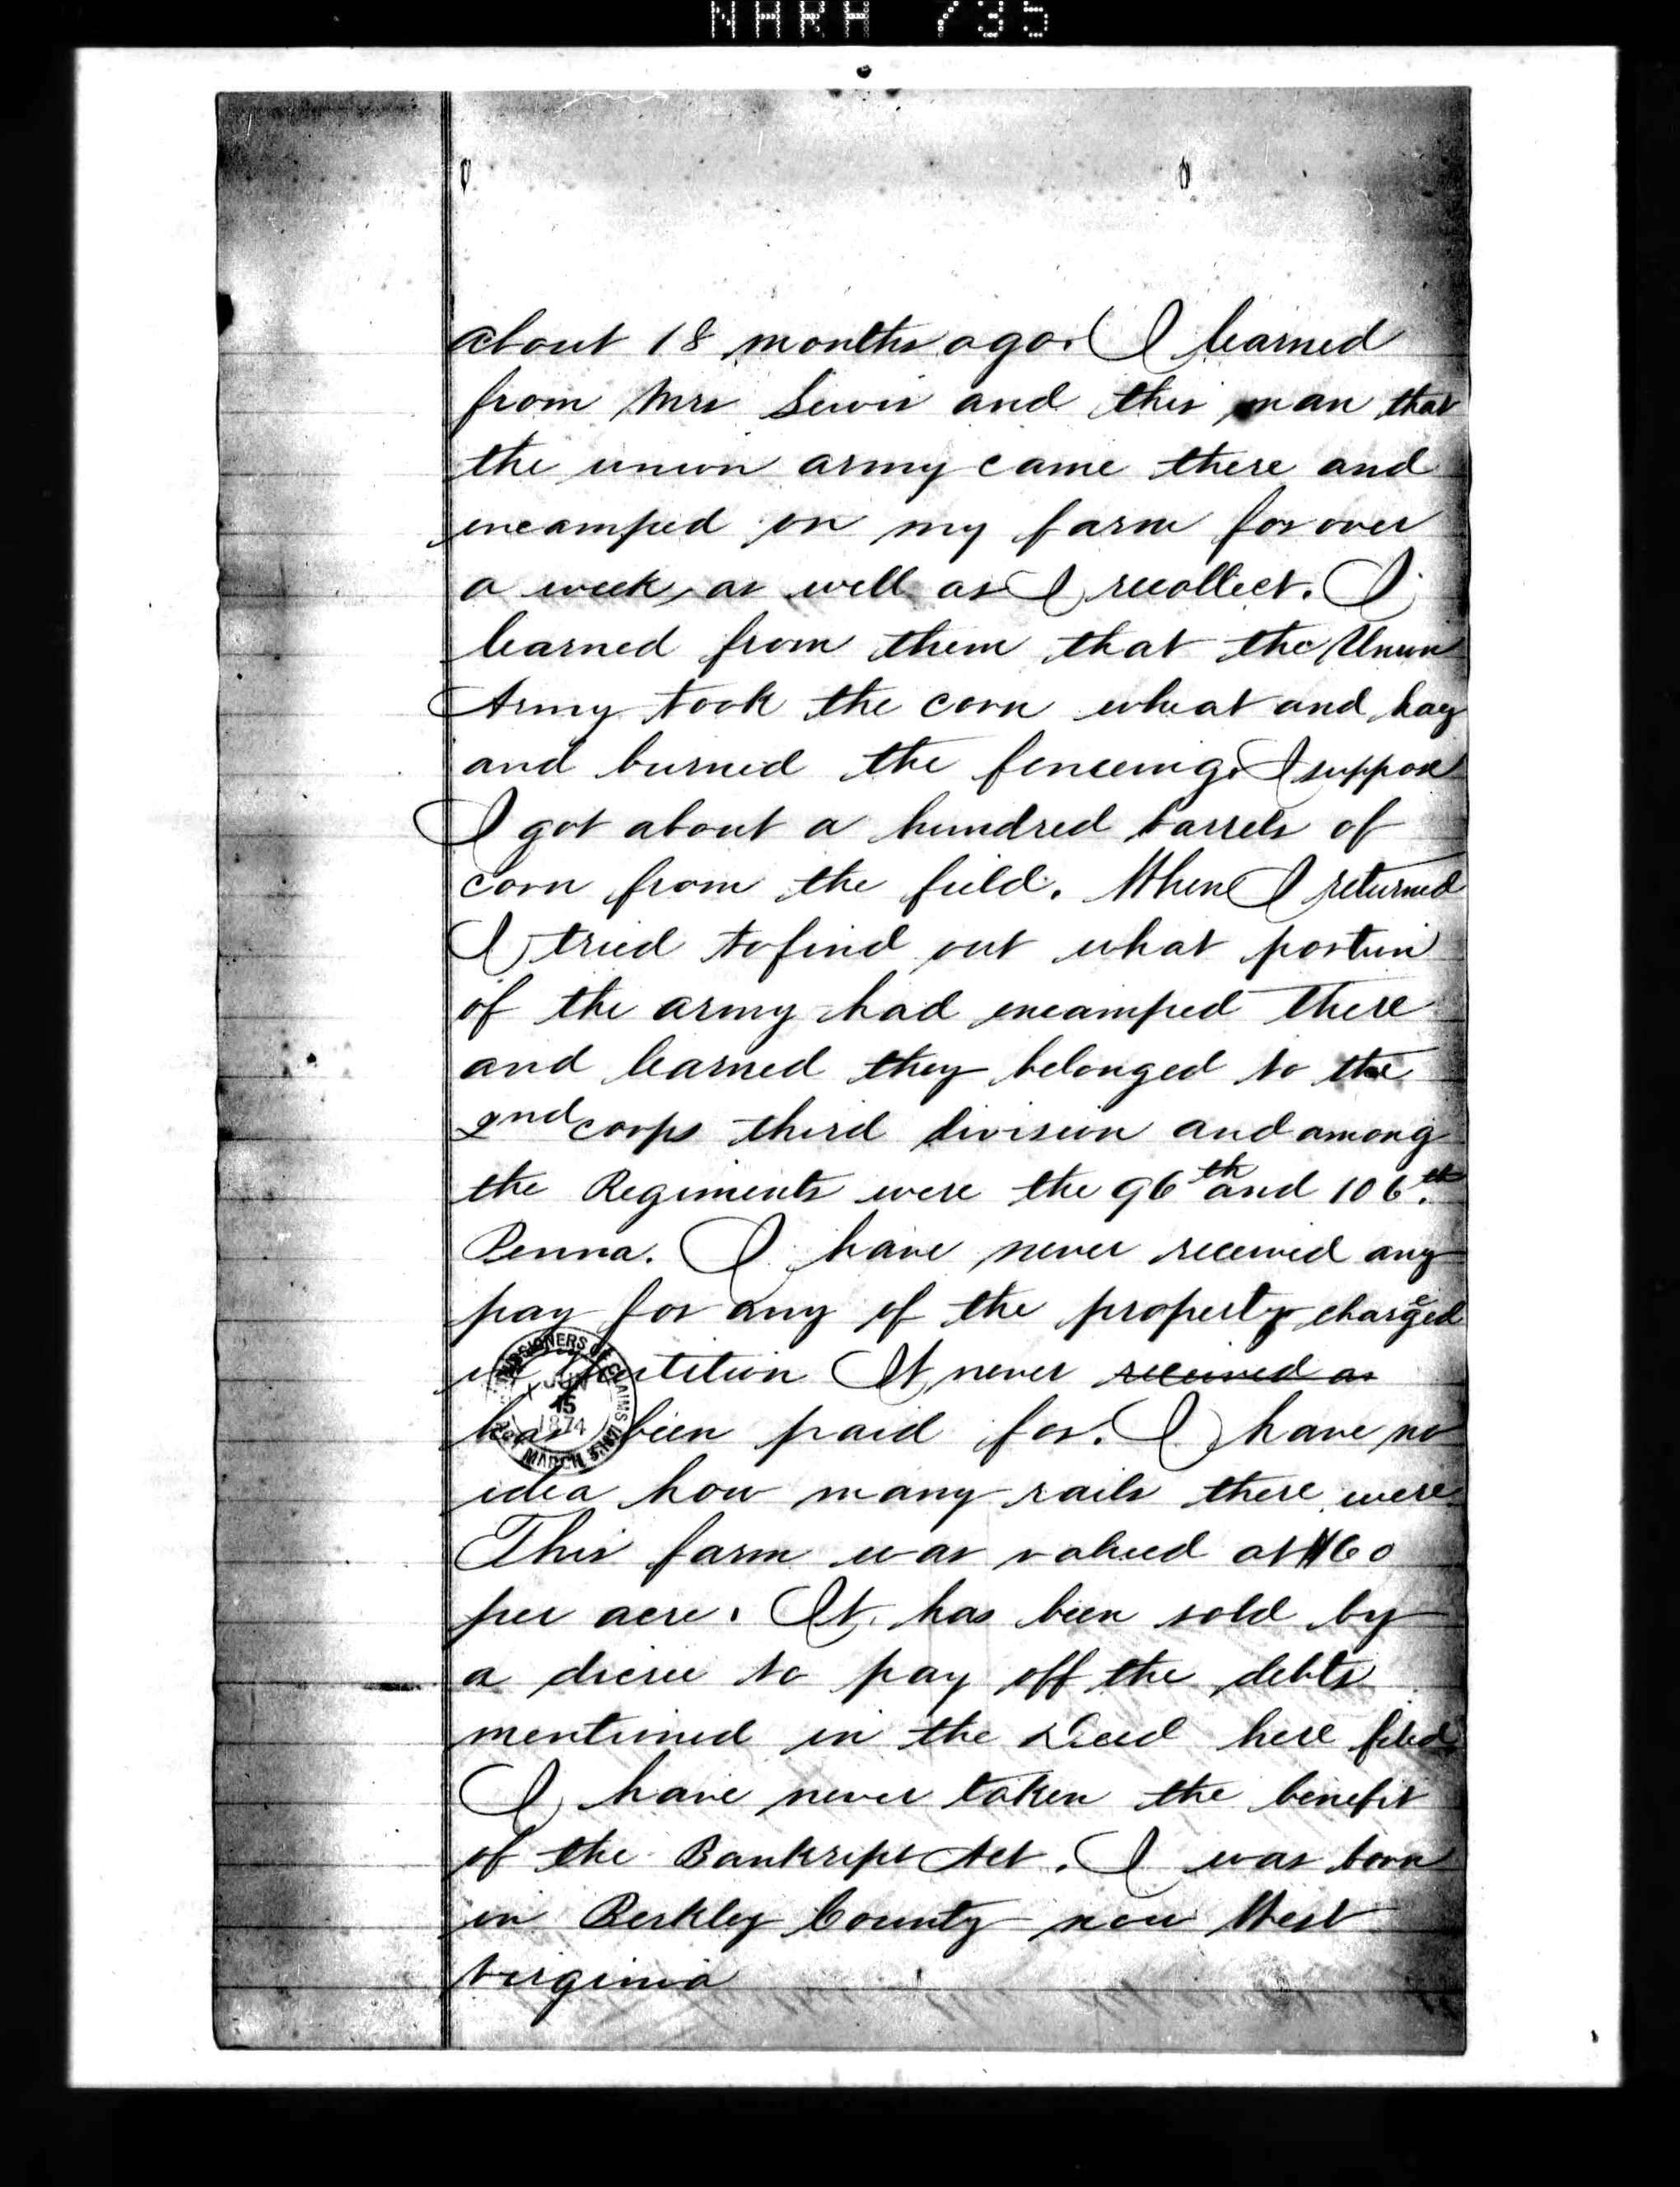 NARA 735
about 18 months ago. I learned
from Mrs Lewis and this man that
the union army came there and
encamped on my farm for over
a week, as well as I recollect. I
learned from them that the Union
Army took the corn wheat and hay
and burned the fenceing. I suppose
I got about a hundred barrels of
corn from the field. When I returned
I tried to find out what portion
of the army had encamped there
and learned they belonged to the
2nd corps third division and among
the Regiments were the 96th and 106th
Penna. I have never received any
pay for any of the property charged
in petition It never received as
has been paid for. I have no
idea how many rails there were
This farm was valued at $60
per acre. It has been sold by
a decree to pay off the debts
mentioned in the Deed here filed
I have never taken the benefit
of the Bankript Act. I was born
in Berkley County now West
Virginia
COMMISSIONERS OF CLAIMS
JUN
15
1874
MARCH 3, 1871